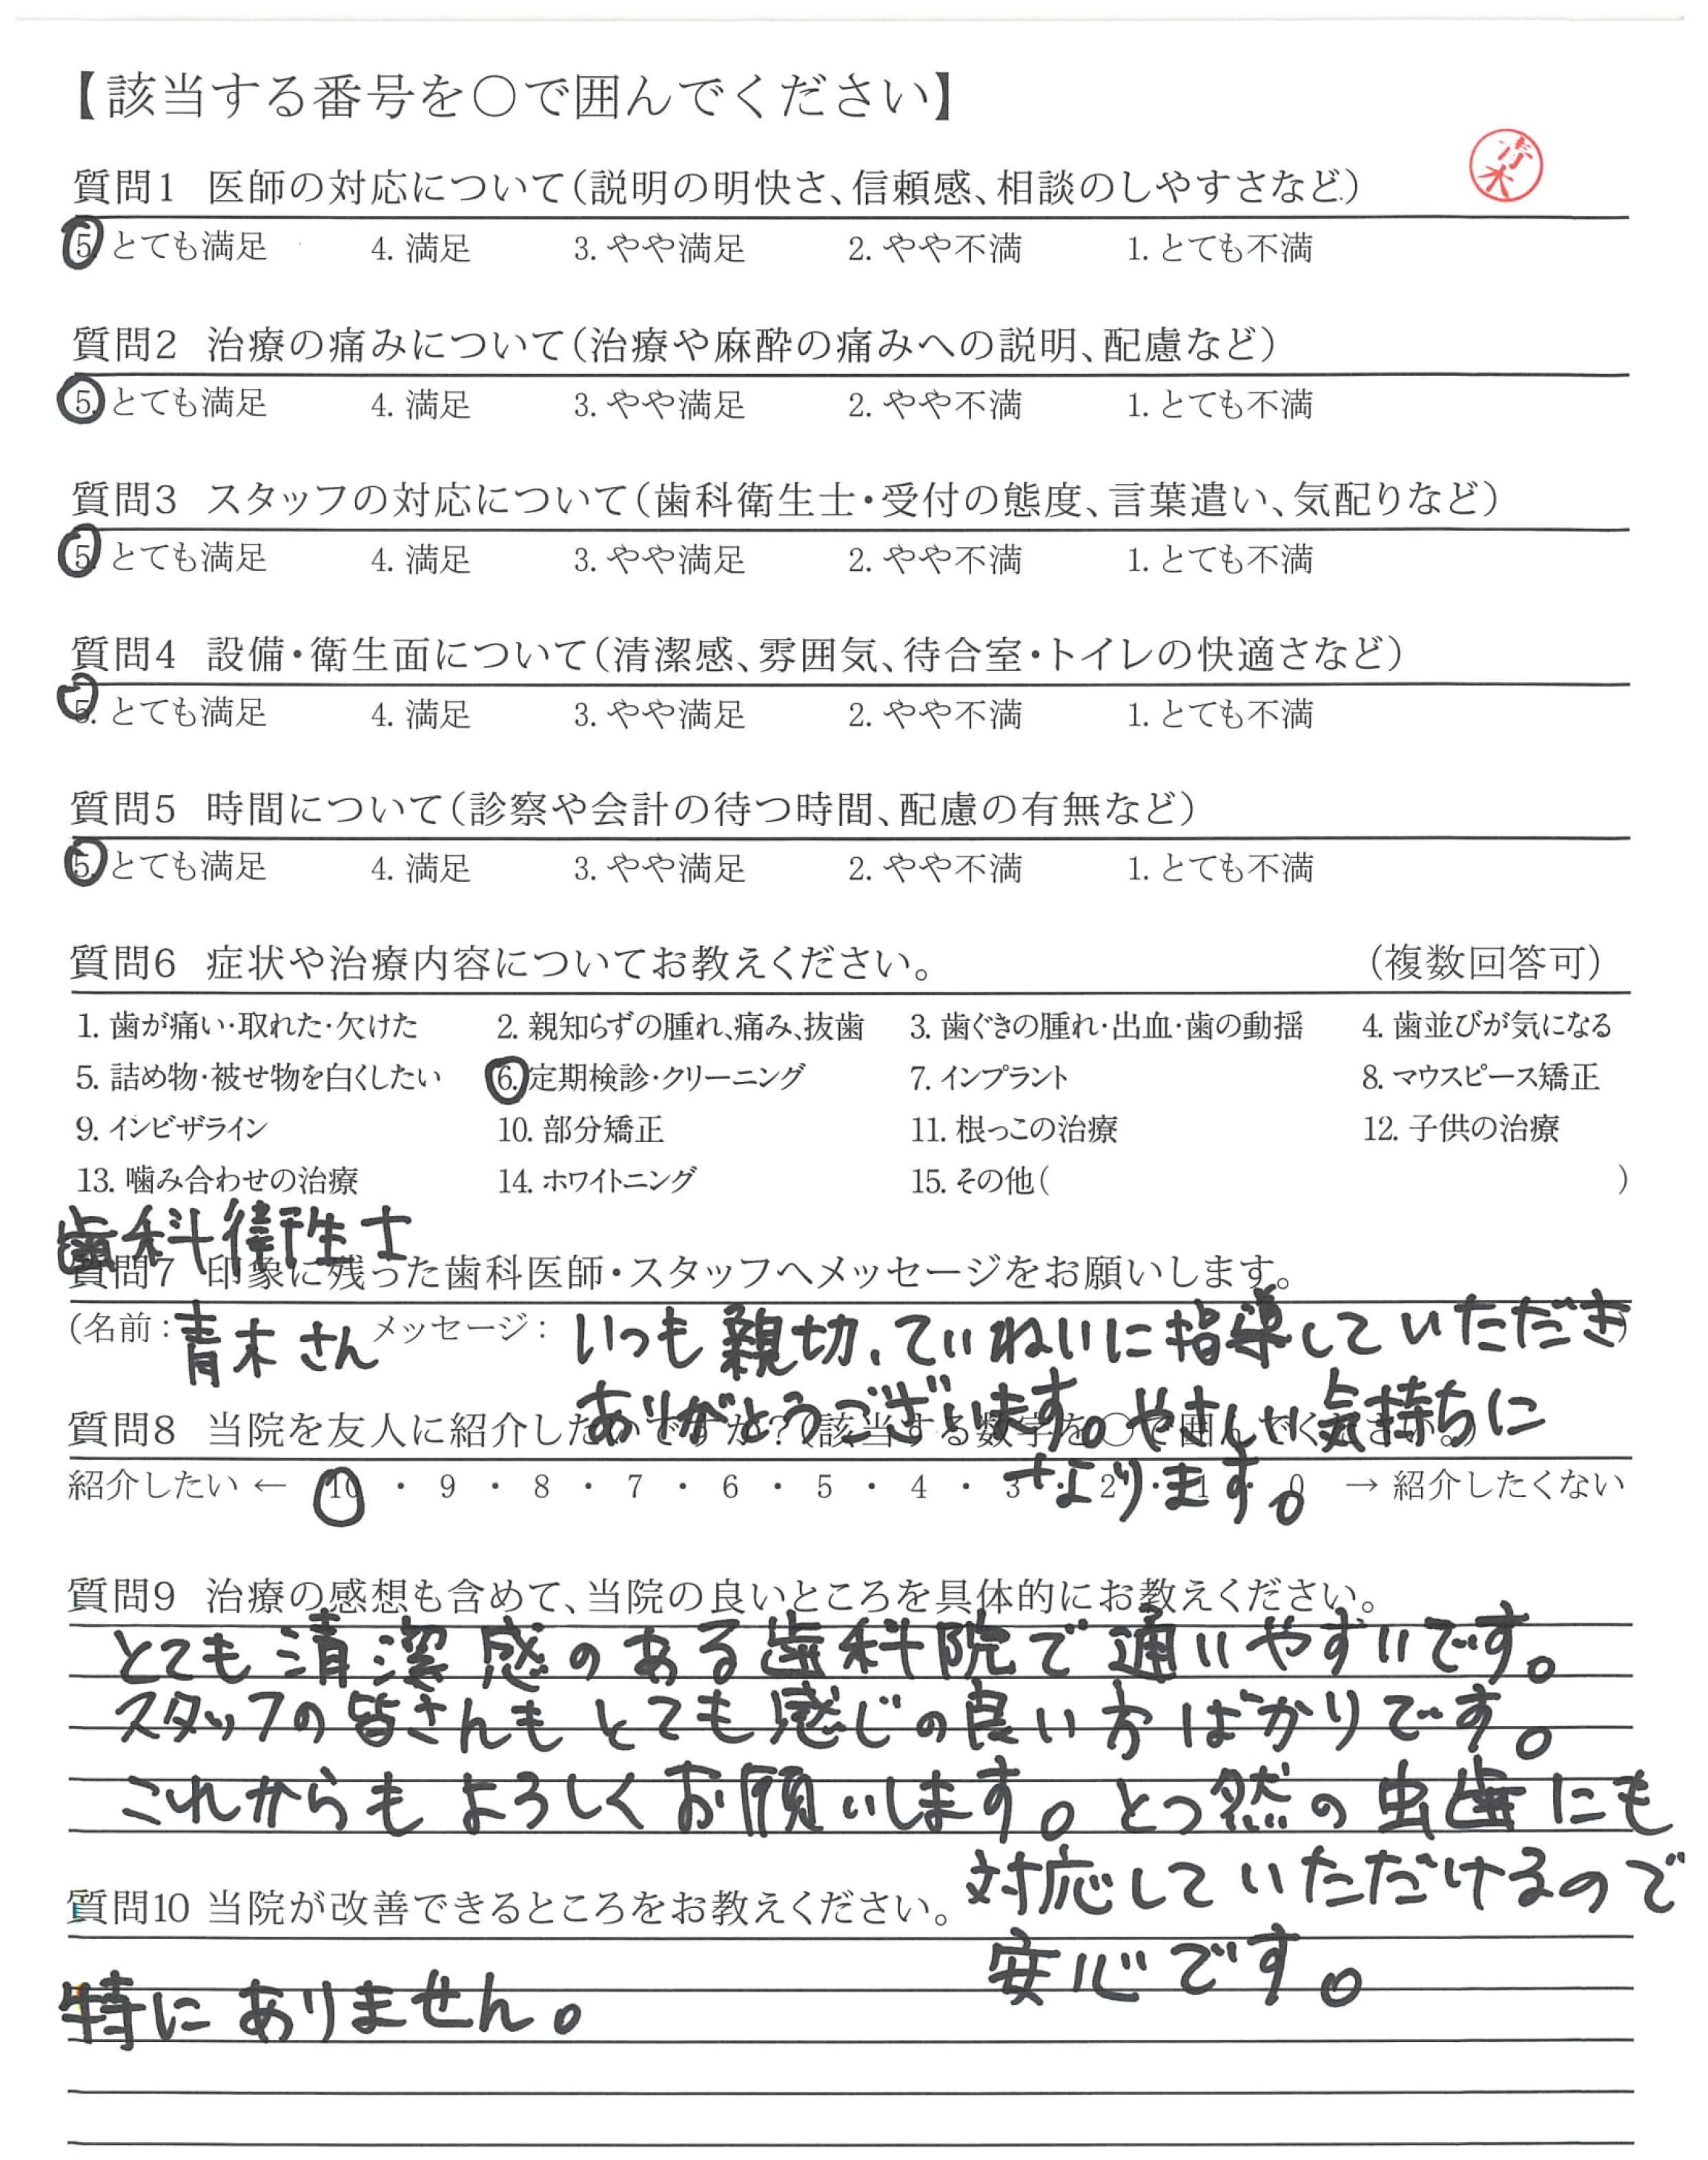 【該当する番号を○で囲んでください】
質問1 医師の対応について(説明の明快さ、信頼感、相談のしやすさなど)
5. とても満足 4. 満足 3. やや満足 2. やや不満 1. とても不満
質問2 治療の痛みについて(治療や麻酔の痛みへの説明、配慮など)
5. とても満足 4. 満足 3. やや満足 2. やや不満 1. とても不満
質問3 スタッフの対応について(歯科衛生士・受付の態度、言葉遣い、気配りなど)
5. とても満足 4. 満足 3. やや満足 2. やや不満 1. とても不満
質問4 設備・衛生面について(清潔感、雰囲気、待合室・トイレの快適さなど)
5. とても満足 4. 満足 3. やや満足 2. やや不満 1. とても不満
質問5 時間について(診察や会計の待つ時間、配慮の有無など)
5. とても満足 4. 満足 3. やや満足 2. やや不満 1. とても不満
質問6 症状や治療内容についてお教えください。 (複数回答可)
1. 歯が痛い・取れた・欠けた 2. 親知らずの腫れ、痛み、抜歯 3. 歯ぐきの腫れ・出血・歯の動揺 4. 歯並びが気になる
5. 詰め物・被せ物を白くしたい 6. 定期検診・クリーニング 7. インプラント 8. マウスピース矯正
9. インビザライン 10. 部分矯正 11. 根っこの治療 12. 子供の治療
13. 噛み合わせの治療 14. ホワイトニング 15. その他( )
歯科衛生士
質問7 印象に残った歯科医師・スタッフへメッセージをお願いします。
(名前: 青木さん メッセージ: いつも親切、ていねいに指導していただき)
ありがとうございます。やさしい気持ちに
なります。
質問8 当院を友人に紹介したいですか?(該当する数字を○で囲んでください。)
紹介したい ← 10 ・ 9 ・ 8 ・ 7 ・ 6 ・ 5 ・ 4 ・ 3 ・ 2 ・ 1 ・ 0 → 紹介したくない
質問9 治療の感想も含めて、当院の良いところを具体的にお教えください。
とても清潔感のある歯科院で通いやすいです。
スタッフの皆さんもとても感じの良い方ばかりです。
これからもよろしくお願いします。とつ然の虫歯にも
対応していただけるので
安心です。
質問10 当院が改善できるところをお教えください。
特にありません。